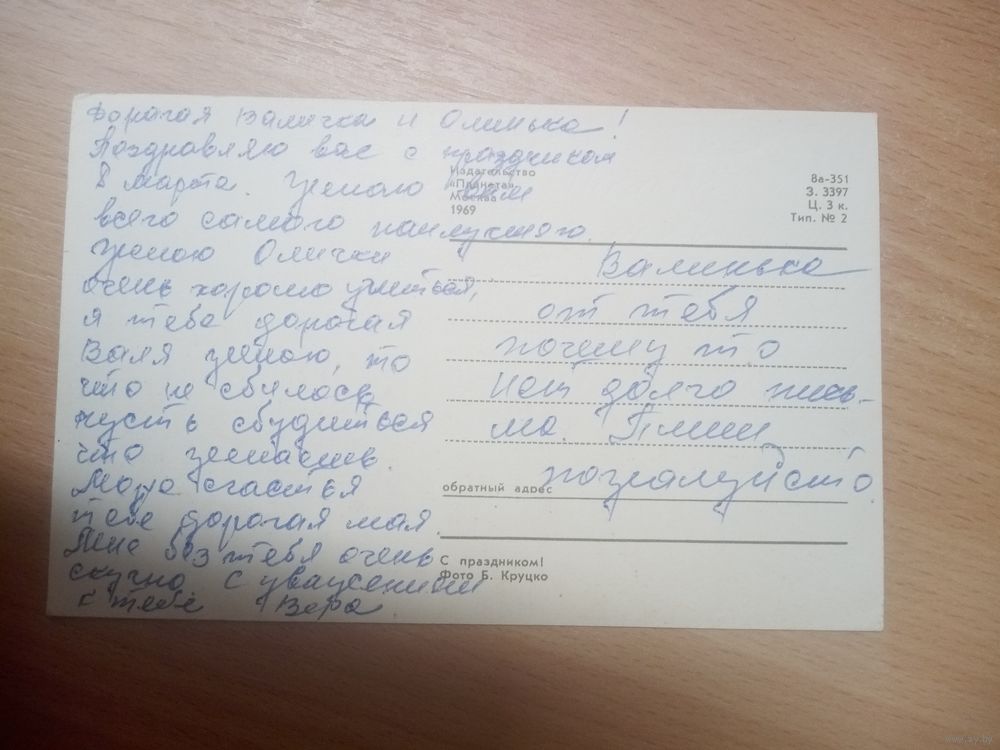 Дорагая Валичка и Олинька!
Поздравляю вас с праздником
8 марта. Желаю вам
всего самого наилучшего.
Желаю Олички
очень хорошо учиться,
а тебе дорогая
Валя желаю, то
что не сбылось
пусть сбудиться
что желаешь.
Море счастья
тебе дорогая мая.
Мне без тебя очень
скучно. С уважением
к тебе Вера
Издательство
«Планета»
Москва
1969
8а-351
З. 3397
Ц. 3 к.
Тип. № 2
Валинька
от тебя
почему то
нет долго пись-
ма. Пиши
пожалуйсто.
обратный адрес
С праздником!
Фото Б. Круцко
www.ay.by